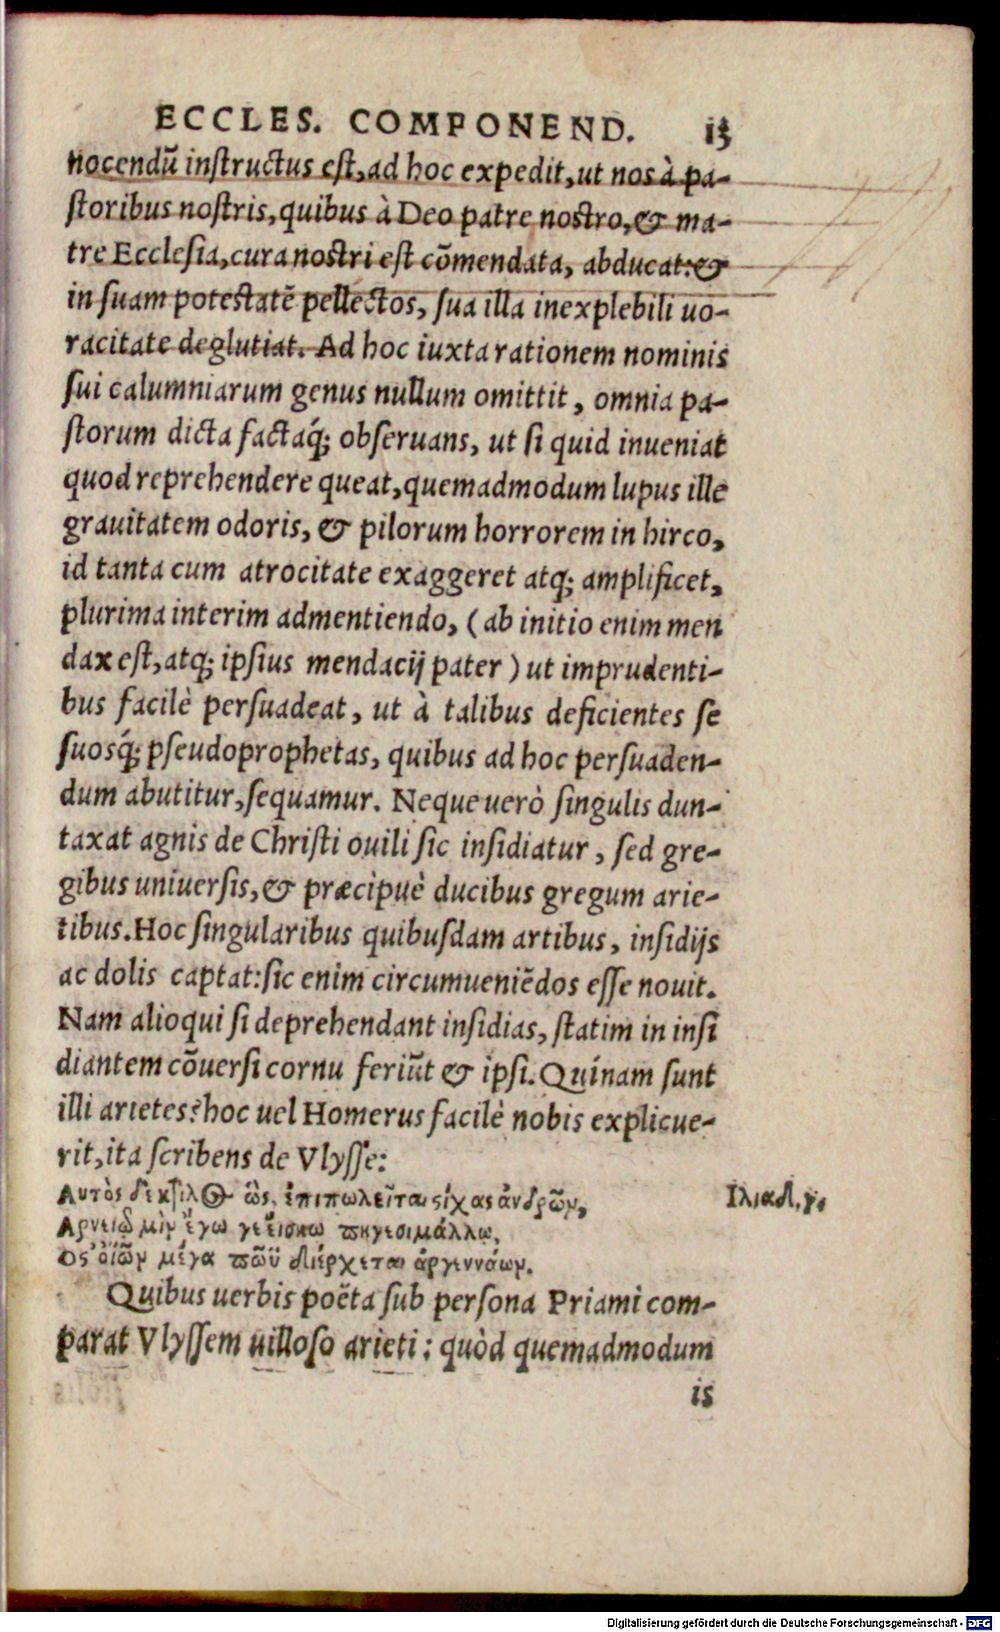 ECCLES. COMPONEND. 13
nocendũ instructus est, ad hoc expedit, ut nos à pa-
storibus nostris, quibus à Deo patre nostro, & ma-
tre Ecclesia, cura nostri est cõmendata, abducat: &
in suam potestatẽ pellectos, sua illa inexplebili uo-
racitate deglutiat. Ad hoc iuxta rationem nominis
sui calumniarum genus nullum omittit, omnia pa-
storum dicta factaq́; obseruans, ut si quid inueniat
quod reprehendere queat, quemadmodum lupus ille
grauitatem odoris, & pilorum horrorem in hirco,
id tanta cum atrocitate exaggeret atq; amplificet,
plurima interim admentiendo, (ab initio enim men
dax est, atq; ipsius mendacij pater) ut imprudenti-
bus facilè persuadeat, ut à talibus deficientes se
suosq́; pseudoprophetas, quibus ad hoc persuaden-
dum abutitur, sequamur. Neque uerò singulis dun-
taxat agnis de Christi ouili sic insidiatur, sed gre-
gibus uniuersis, & præcipuè ducibus gregum arie-
tibus. Hoc singularibus quibusdam artibus, insidijs
ac dolis captat: sic enim circumueniẽdos esse nouit.
Nam alioqui si deprehendant insidias, statim in insi
diantem cõuersi cornu feriũt & ipsi. Quínam sunt
illi arietes? hoc uel Homerus facilè nobis explicue-
rit, ita scribens de Vlysse:
Αυτὸς δε κτίλος ὣς, ἐπιπωλεῖται στίχας ἀνδρῶν,
Ιλιαδ, γ.
Αρνειῷ μὶν ἔγω γε ἐΐσκω πηγεσιμάλλω,
Ος' ὀΐῶν μέγα πῶϋ διέρχεται ἀργεννάων.
Quibus uerbis poẽta sub persona Priami com-
parat Vlyssem uilloso arieti: quòd quemadmodum
is
Digitalisierung gefördert durch die Deutsche Forschungsgemeinschaft - DFG